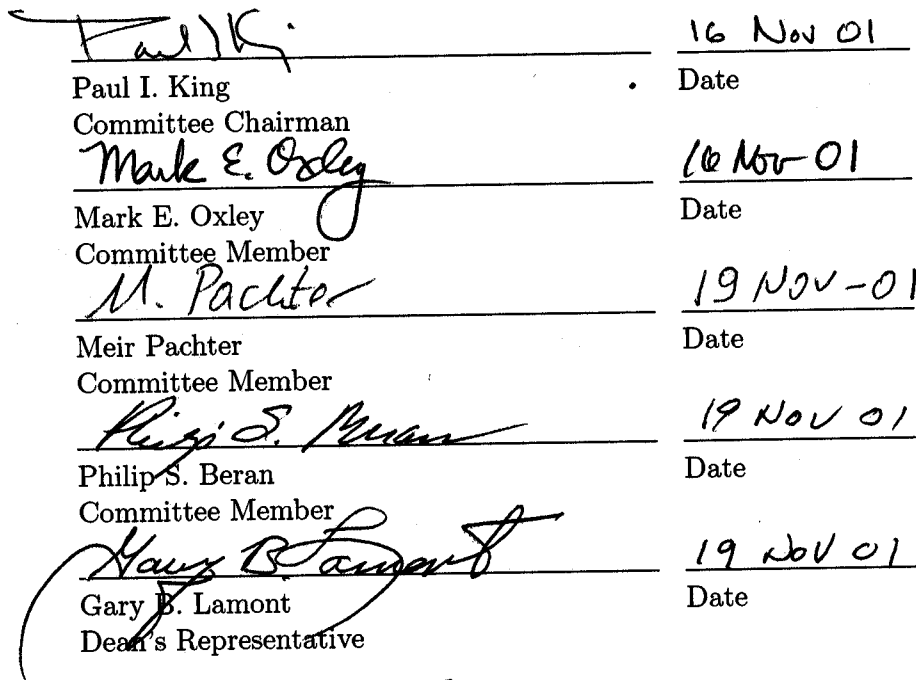 Paul I King 16 Nov 01
Paul I. King Date
Committee Chairman
Mark E. Oxley 16 Nov-01
Mark E. Oxley Date
Committee Member
M. Pachter 19 Nov-01
Meir Pachter Date
Committee Member
Philip S. Beran 19 Nov 01
Philip S. Beran Date
Committee Member
Gary B Lamont 19 Nov 01
Gary B. Lamont Date
Dean's Representative